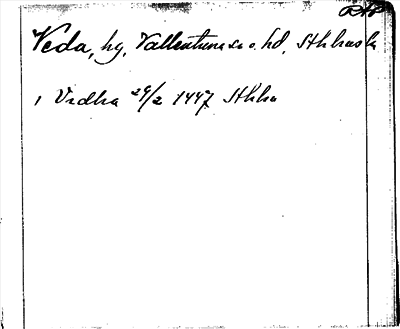 Veda, hg, Vallentuna sn o. hd, Sthlms la
, Vædha 29/2 1447 Sthlm